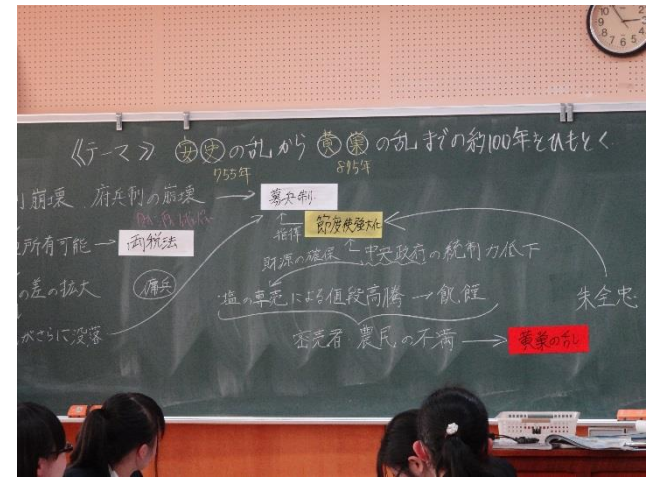 《テーマ》 安史の乱から黄巣の乱までの約100年をひもとく
755年 875年
崩壊 府兵制の崩壊 → 募兵制
所有可能 → 両税法 指揮 節度使強大化
財源の確保 中央政府の統制力低下
の差の拡大 傭兵
塩の専売による値段高騰 → 飢饉 朱全忠
がさらに没落
密売者 農民の不満 → 黄巣の乱
10 2
9 3
8 4
7 6 5